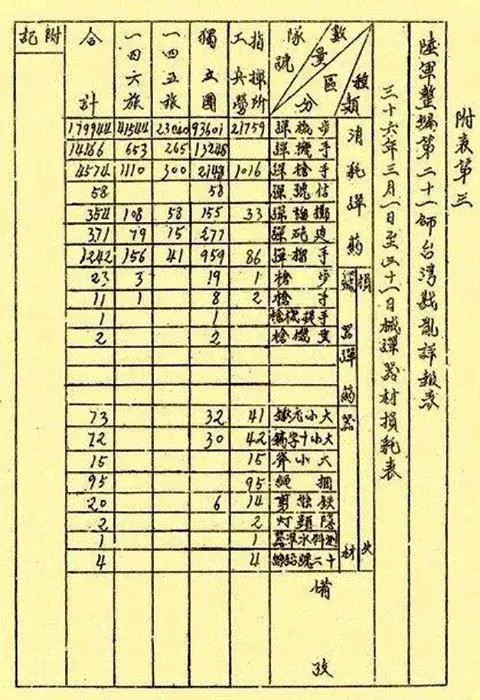 附表第三
陸軍整編第二十一師台灣戡亂詳報表
三十六年三月一日至三十一日械彈器材損耗表
種類 區分 數量 隊號 指揮所 工兵營 獨立團 一四五旅 一四六旅 合計 附記
消耗彈藥
步槍彈 21759 93601 23040 41544 179944
手機彈 13248 265 653 14166
手槍彈 1016 2148 300 1110 4574
信號彈 58 58
擲榴彈 33 155 58 108 354
迫砲彈 277 15 79 371
手榴彈 86 959 41 156 1242
損 失
器彈藥器材
步槍 1 19 3 23
手槍 2 8 1 11
手提機槍 1 1
重機槍 2 2
大小元鍬 41 32 73
大小十字鎬 42 30 72
大小斧 15 15
捆繩 95 95
鉄絲剪 14 6 20
頭灯 2 2
測斜水準器 1 1
十二號 4 4
備攷